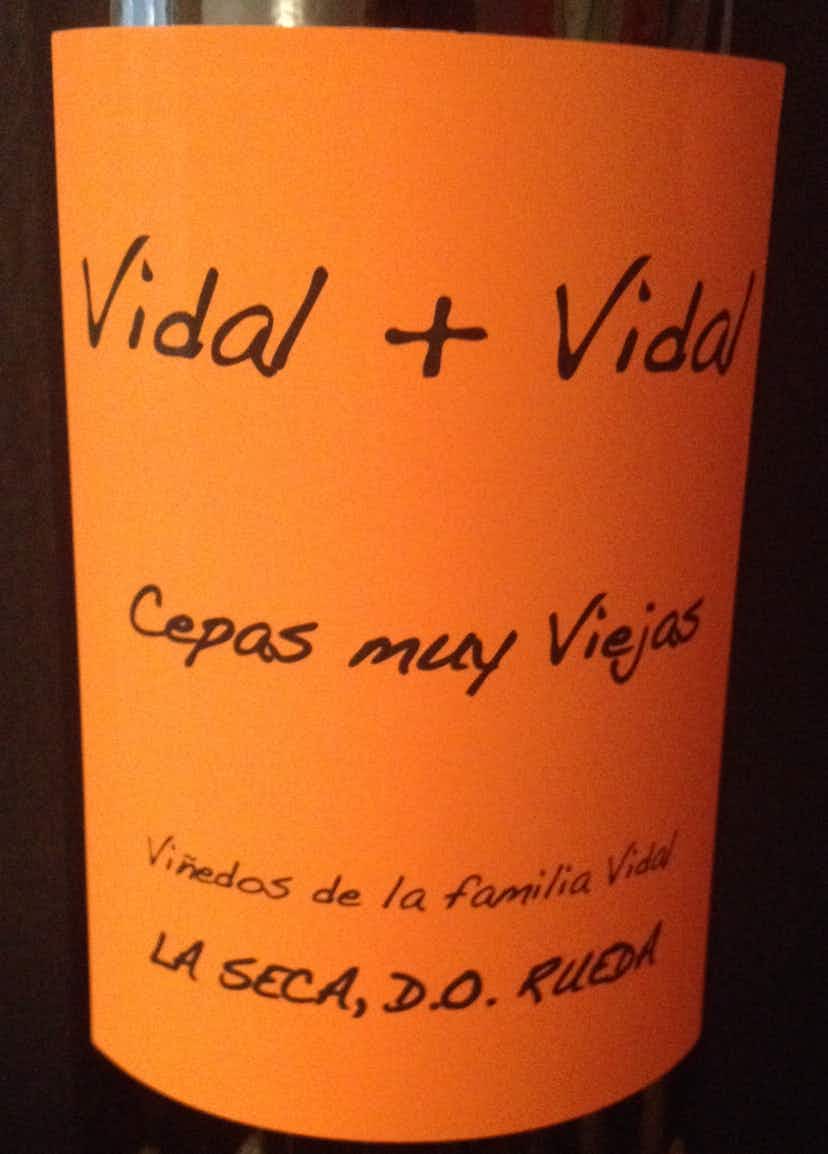 Vidal + Vidal
Cepas muy Viejas
Viñedos de la familia Vidal
LA SECA, D.O. RUEDA